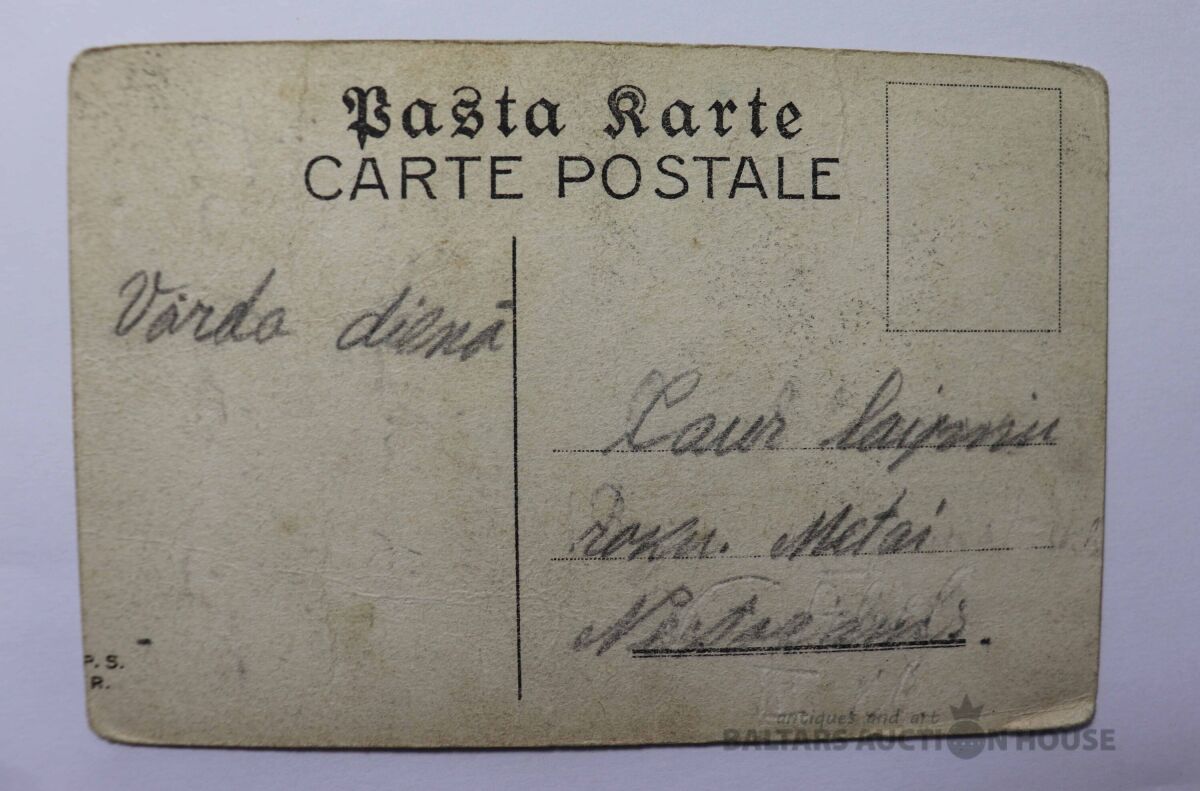 Pasta Karte
CARTE POSTALE
Vārda dienā
Caur laipnu
roku. Metai
P. S.
R.
antiques and art
BALTARS AUCTION HOUSE